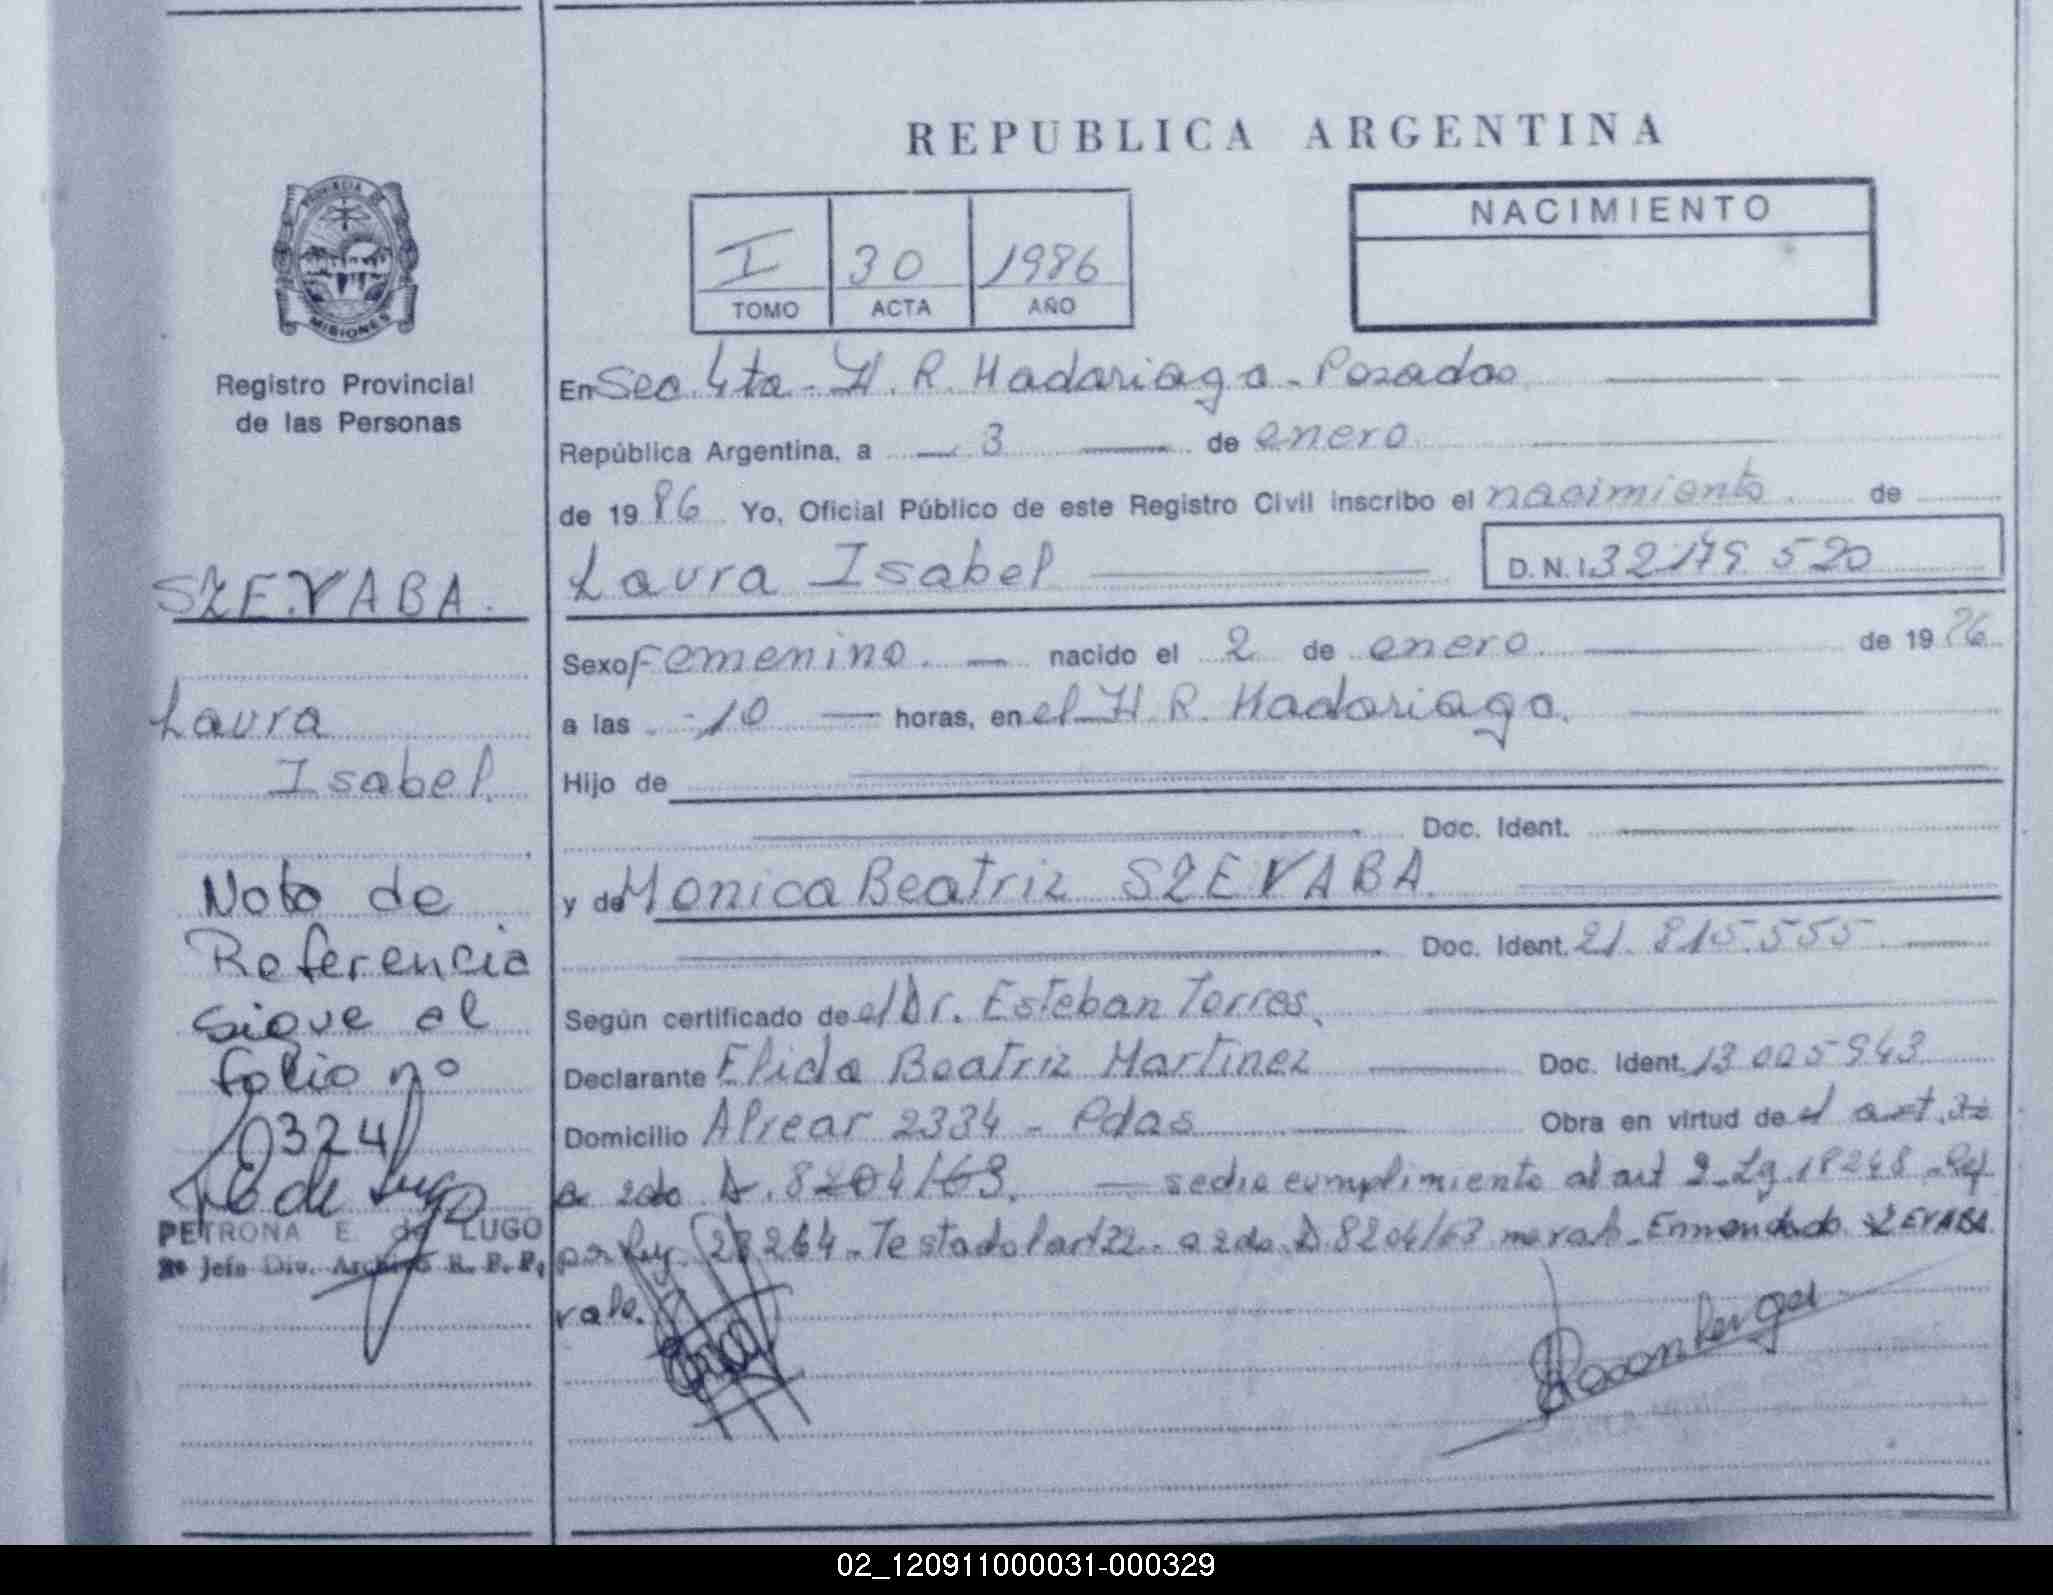 REPUBLICA ARGENTINA
PROVINCIA DE
MISIONES
Registro Provincial
de las Personas
I 30 1986
TOMO ACTA AÑO
NACIMIENTO
En Sec. 4ta - H. R. Madariaga - Posadas
República Argentina, a 3 de enero
de 1986 Yo, Oficial Público de este Registro Civil inscribo el nacimiento de
Laura Isabel D.N.I. 32.179.520
Sexo Femenino. nacido el 2 de enero de 1986
a las 10 horas, en el H. R. Madariaga.
Hijo de
Doc. Ident.
y de Monica Beatriz SZEVABA.
Doc. Ident. 21.815.555
Según certificado de el Dr. Esteban Torres.
Declarante Elida Beatriz Martinez Doc. Ident. 13.005.943
Domicilio Alvear 2334 - Pdas Obra en virtud de el art.
a 2do D. 8204/63. se dio cumplimiento al art 2 - Lg. 18248 - Ref
por ley 23264 - Testado art 22 - a 2do. D. 8204/63 no vale - Enmendado SZEVABA
vale.
SZEVABA.
Laura
Isabel.
Nota de
Referencia
sigue al
folio nº
0324
PETRONA E. de LUGO
2º Jefa Div. Archivo R. P. P.
02_120911000031-000329